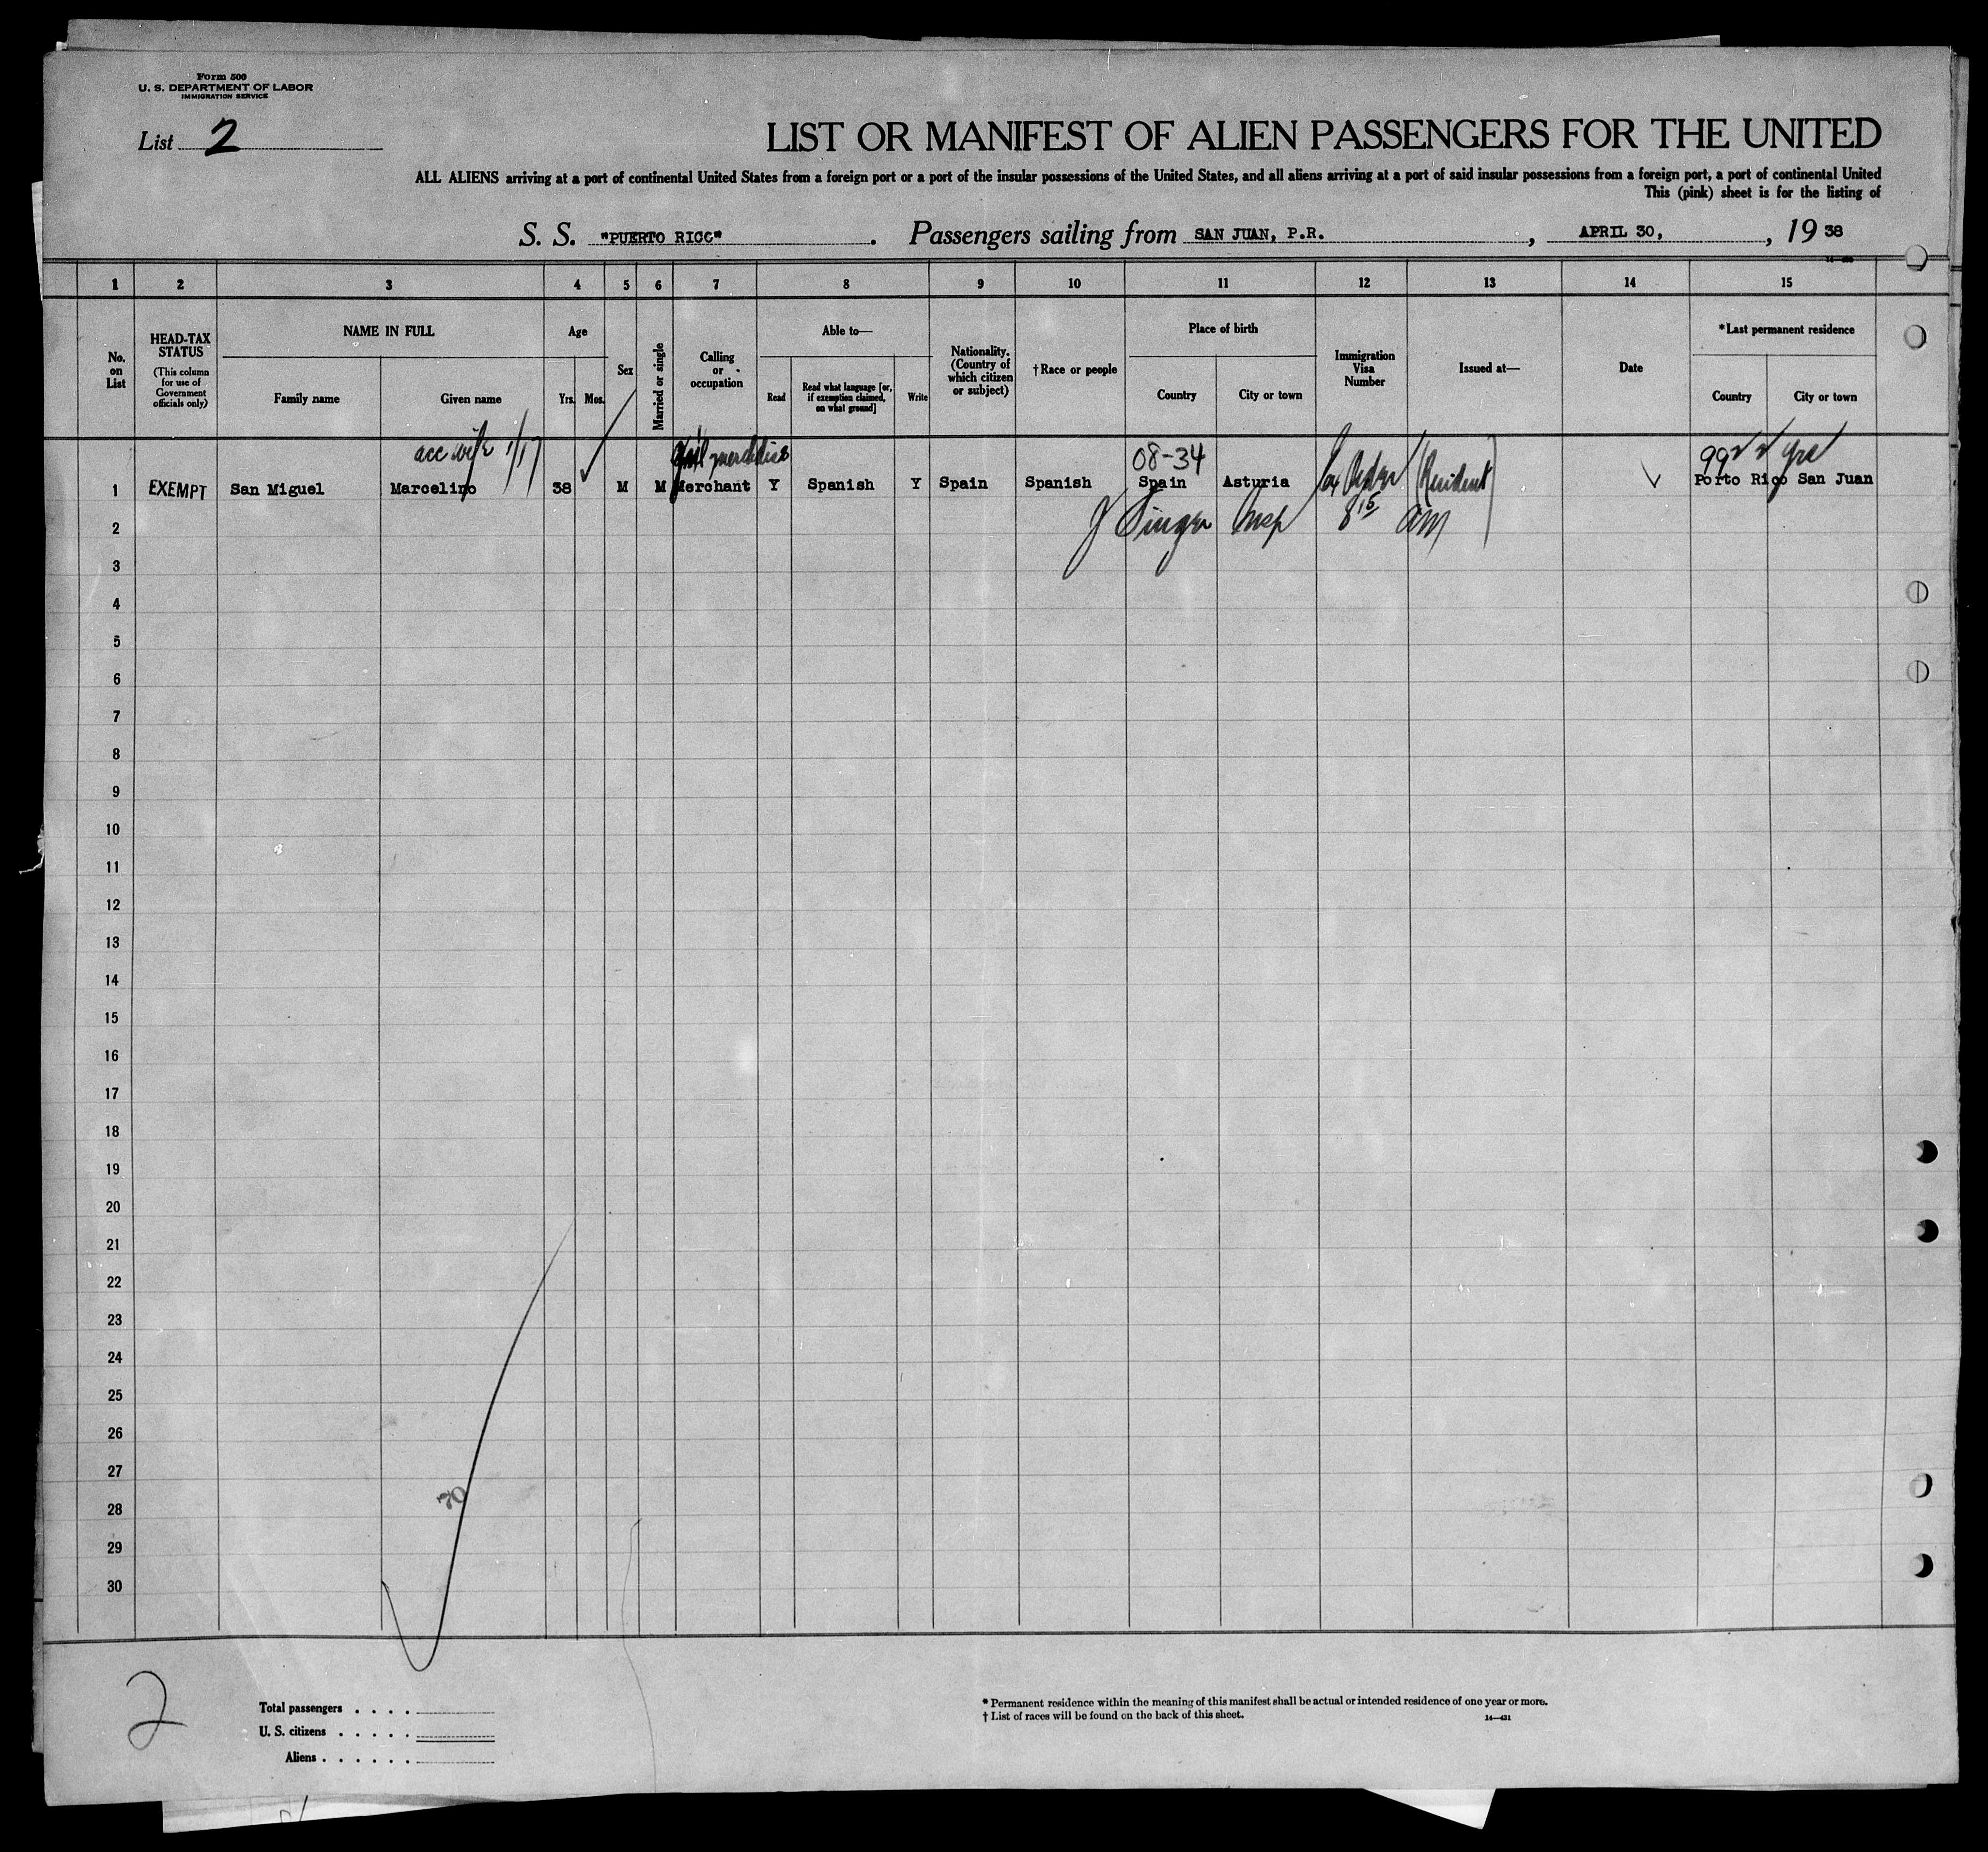 Form 500
U. S. DEPARTMENT OF LABOR
IMMIGRATION SERVICE
List 2
LIST OR MANIFEST OF ALIEN PASSENGERS FOR THE UNITED
ALL ALIENS arriving at a port of continental United States from a foreign port or a port of the insular possessions of the United States, and all aliens arriving at a port of said insular possessions from a foreign port, a port of continental United
This (pink) sheet is for the listing of
S. S. "PUERTO RICO". Passengers sailing from SAN JUAN, P.R., APRIL 30, , 19 38
1 2 3 4 5 6 7 8 9 10 11 12 13 14 15
No. on List
HEAD-TAX STATUS (This column for use of Government officials only)
NAME IN FULL
Family name
Given name
Age
Yrs. Mos.
Sex
Married or single
Calling or occupation
Able to—
Read
Read what language [or, if exemption claimed, on what ground]
Write
Nationality. (Country of which citizen or subject)
†Race or people
Place of birth
Country
City or town
Immigration Visa Number
Issued at—
Date
*Last permanent residence
Country
City or town
acc wife 1/17
08-34
(Resident)
99 yrs
1 EXEMPT San Miguel Marcelino 38 M M Merchant Y Spanish Y Spain Spanish Spain Asturia Porto Rico San Juan
J Singer Insp 8 15 am
2
3
4
5
6
7
8
9
10
11
12
13
14
15
16
17
18
19
20
21
22
23
24
25
26
27
70
28
29
30
2
Total passengers . . . .
U. S. citizens . . . . .
Aliens . . . . . .
* Permanent residence within the meaning of this manifest shall be actual or intended residence of one year or more.
† List of races will be found on the back of this sheet.
14—431